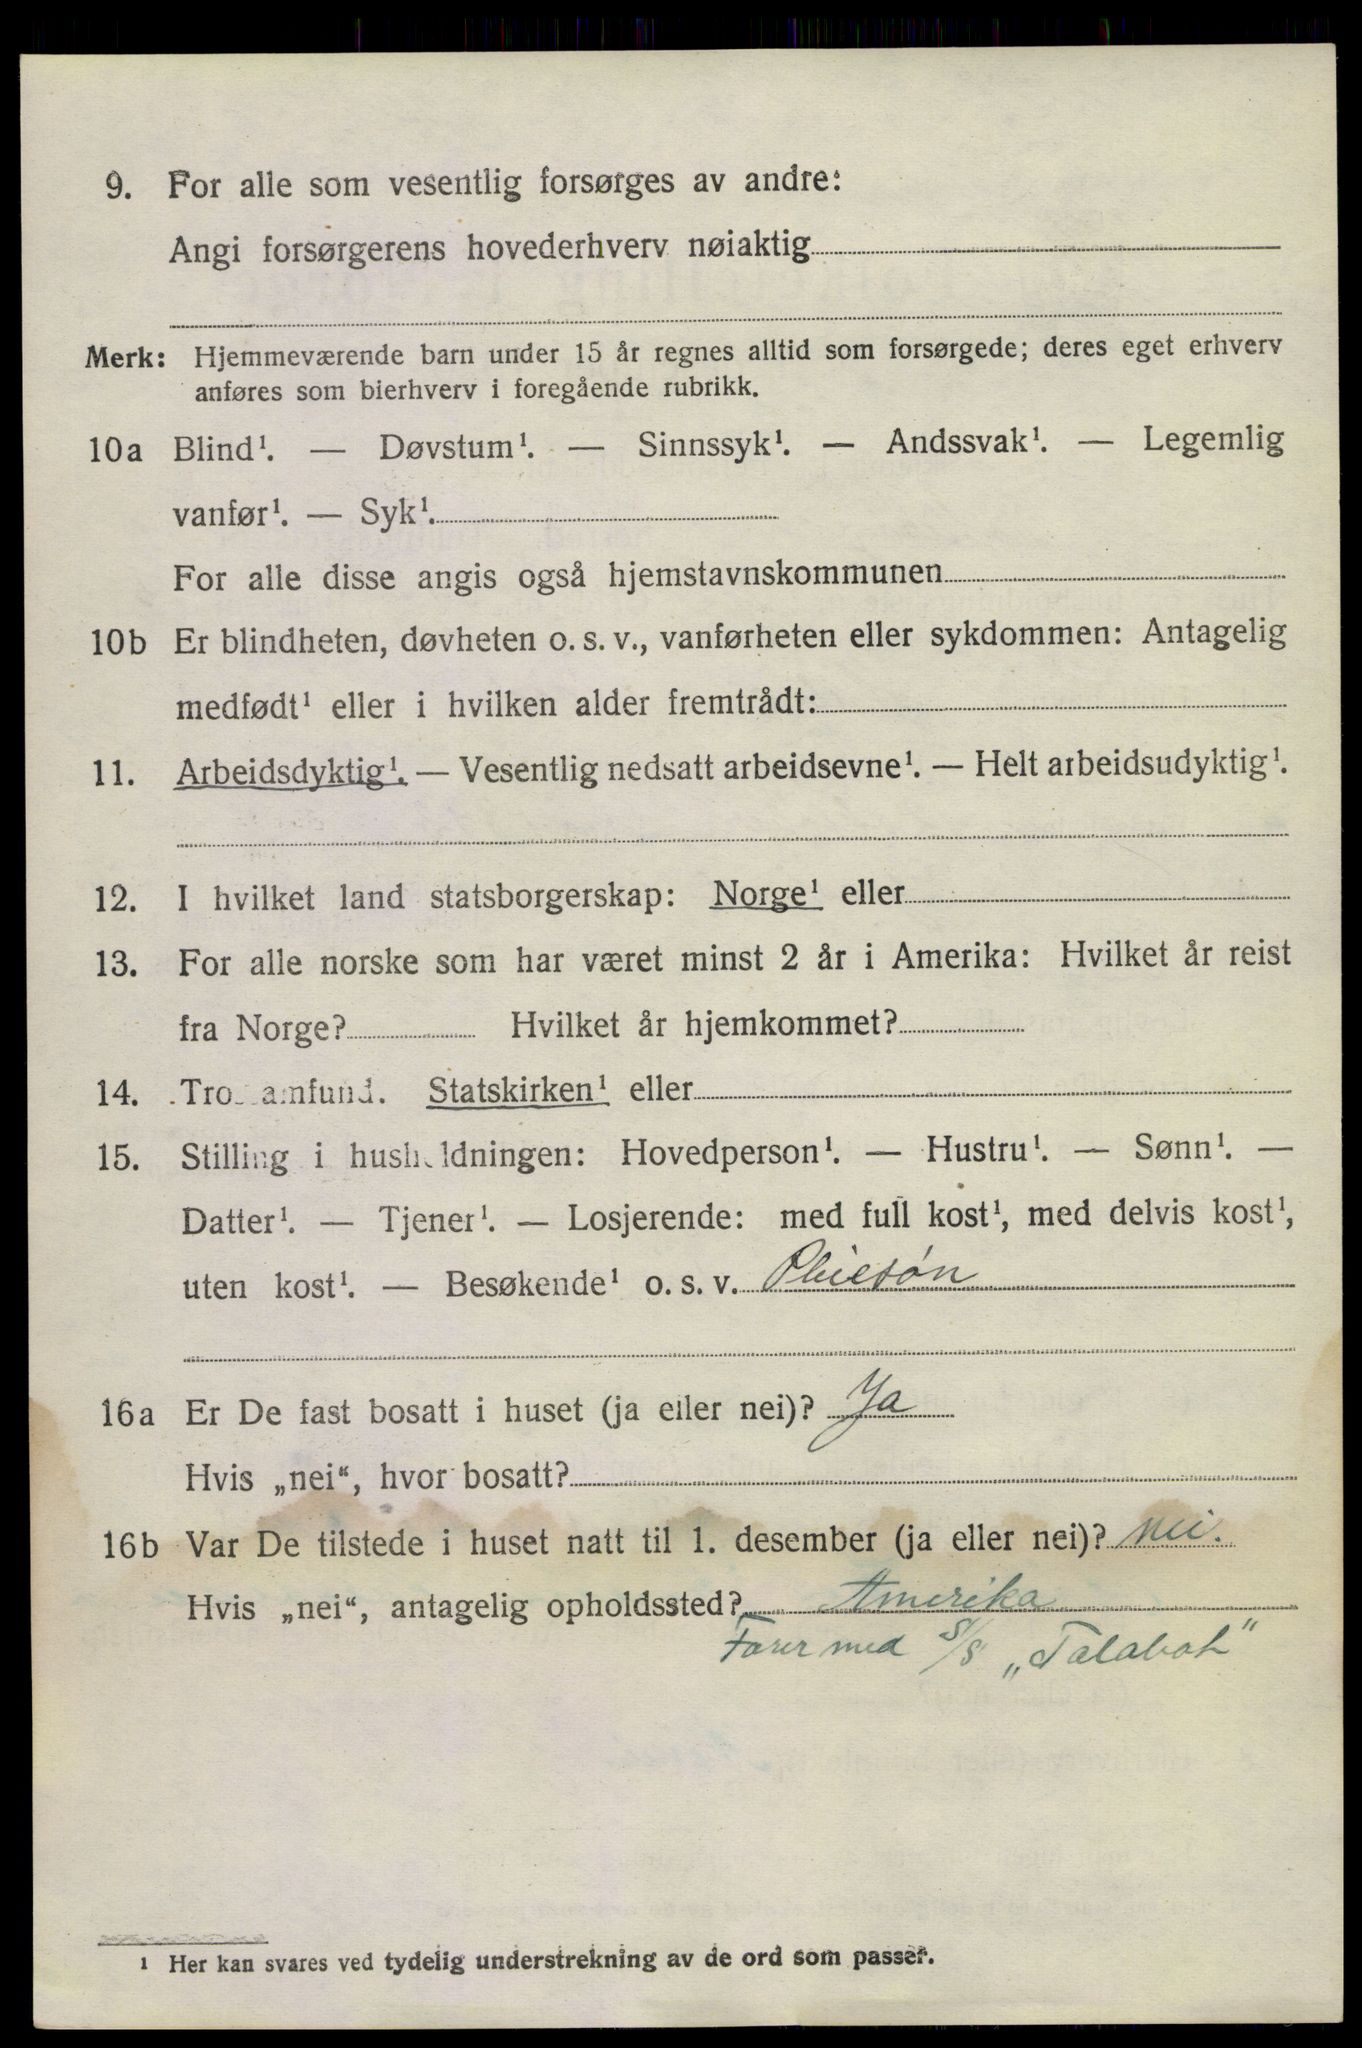 9. For alle som vesentlig forsørges av andre:
Angi forsørgerens hovederhverv nøiaktig
Merk: Hjemmeværende barn under 15 år regnes alltid som forsørgede; deres eget erhverv
anføres som bierhverv i foregående rubrikk.
10a Blind¹. — Døvstum¹. — Sinnssyk¹. — Andssvak¹. — Legemlig
vanfør¹. — Syk¹.
For alle disse angis også hjemstavnskommunen
10b Er blindheten, døvheten o. s. v., vanførheten eller sykdommen: Antagelig
medfødt¹ eller i hvilken alder fremtrådt:
11. Arbeidsdyktig¹. — Vesentlig nedsatt arbeidsevne¹. — Helt arbeidsudyktig¹.
12. I hvilket land statsborgerskap: Norge¹ eller
13. For alle norske som har været minst 2 år i Amerika: Hvilket år reist
fra Norge? Hvilket år hjemkommet?
14. Trossamfund. Statskirken¹ eller
15. Stilling i husholdningen: Hovedperson¹. — Hustru¹. — Sønn¹. —
Datter¹. — Tjener¹. — Losjerende: med full kost¹, med delvis kost¹,
uten kost¹. — Besøkende¹ o. s. v. Pleiesøn
16a Er De fast bosatt i huset (ja eller nei)? Ja
Hvis „nei“, hvor bosatt?
16b Var De tilstede i huset natt til 1. desember (ja eller nei)? nei.
Hvis „nei“, antagelig opholdssted? Amerika
Farer med S/S „Talabot“
¹ Her kan svares ved tydelig understrekning av de ord som passer.